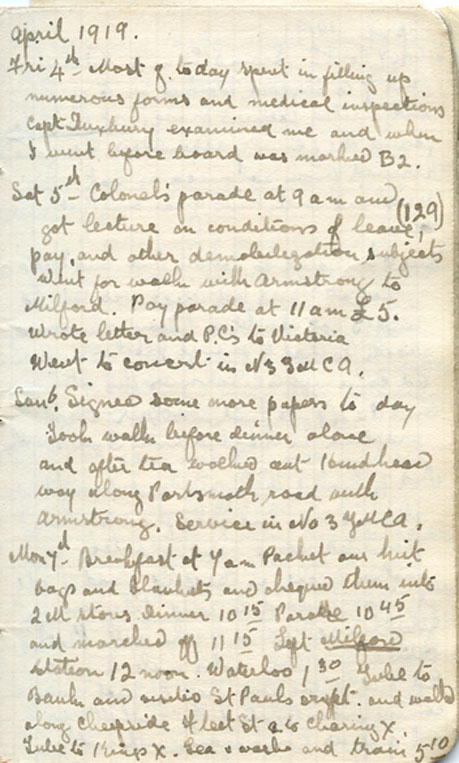 April 1919.
Fri 4th - Most of today spent in filling up
numerous forms and medical inspections
Capt Tuxbury examined me and when
I went before board was marked B2.
Sat 5th - Colonel's parade at 9 am and (129)
got lecture on conditions of leave,
pay, and other demobilization subjects
Went for walk with Armstrong to
Milford. Pay parade at 11 am £5.
Wrote letter and P.C's to Victoria
Went to concert in No 3 YMCA.
Sun 6. Signed some more papers to day
Took walk before dinner alone
and after tea walked out Hindhead
way along Portsmouth road with
Armstrong. Service in No 3 YMCA.
Mon 7th - Breakfast at 7 am Packed our kit
bags and blankets and chequed them into
2M stores Dinner 10 15 Parade 10 45
and marched off 11 15 Left Milford
station 12 noon. Waterloo 1 30 Tube to
Bank and St Pauls crypt. and walk
along Cheapside Fleet St & to Charing X.
Tube to Kings X. Tea & wash and train 5 10